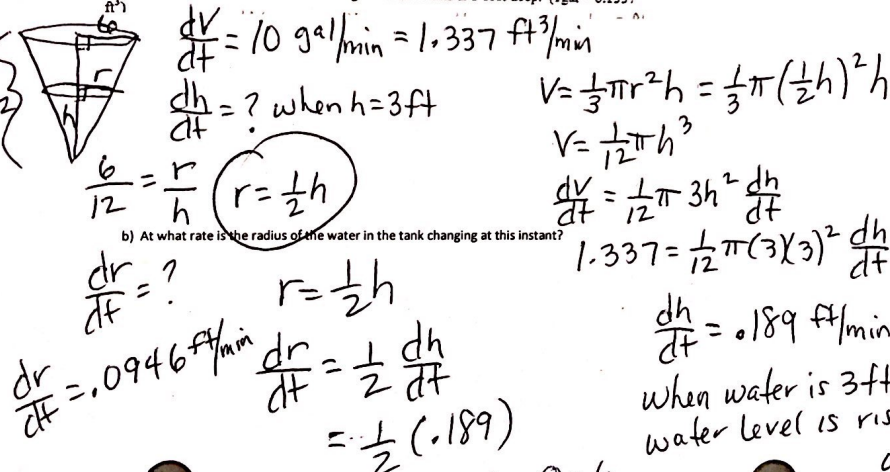 ft³)
60
r
h
2
dV/dt = 10 gal/min = 1.337 ft³/min
dh/dt = ? when h=3ft
6/12 = r/h
r = 1/2 h
V = 1/3 πr²h = 1/3 π(1/2 h)²h
V = 1/12 πh³
dV/dt = 1/12 π 3h² dh/dt
1.337 = 1/12 π(3)(3)² dh/dt
dh/dt = .189 ft/min
when water is 3ft
water level is ris
b) At what rate is the radius of the water in the tank changing at this instant?
dr/dt = ?
r = 1/2 h
dr/dt = 1/2 dh/dt
= 1/2 (.189)
dr/dt = .0946 ft/min